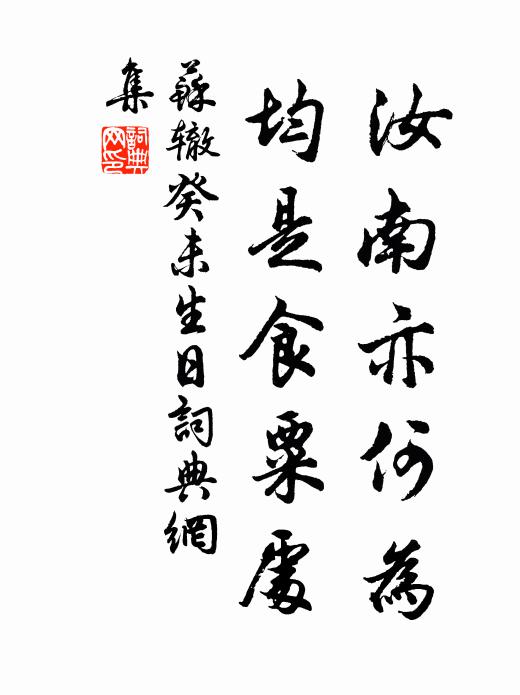 汝南亦何為
均是食粟處
蘇辙癸未生日詞典網
集
詞典
网印